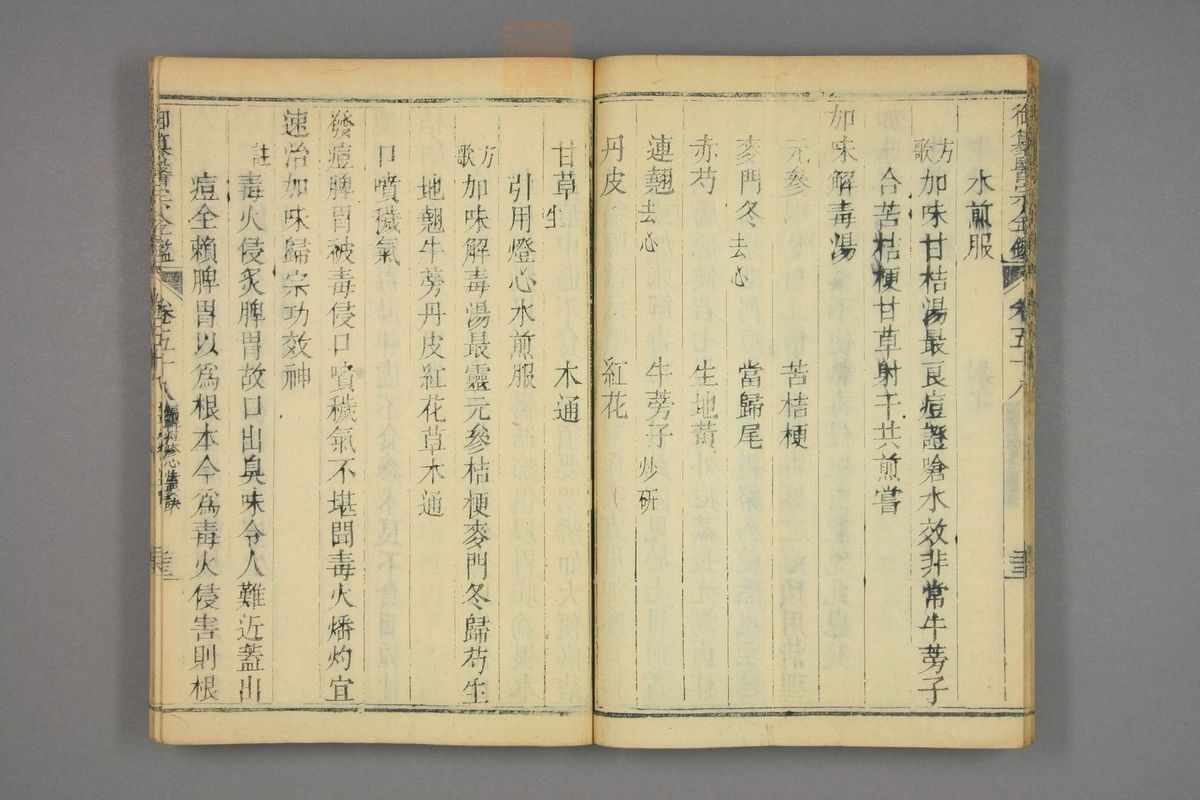 御纂醫宗金鑑 卷五十八
水煎服
方歌 加味甘桔湯最良痘證嗆水效非常牛蒡子
合苦桔梗甘草射干共煎嘗
加味解毒湯
元參 苦桔梗
麥門冬去心 當歸尾
赤芍 生地黃
連翹去心 牛蒡子炒研
丹皮 紅花
甘草生 木通
引用燈心水煎服
方歌 加味解毒湯最靈元參桔梗麥門冬歸芍生
地翹牛蒡丹皮紅花草木通
口噴穢氣
發痘脾胃被毒侵口噴穢氣不堪聞毒火燔灼宜
速治加味歸宗功效神
註 毒火侵炙脾胃故口出臭味令人難近蓋出
痘全賴脾胃以爲根本今爲毒火侵害則根
御纂醫宗金鑑 卷五十八